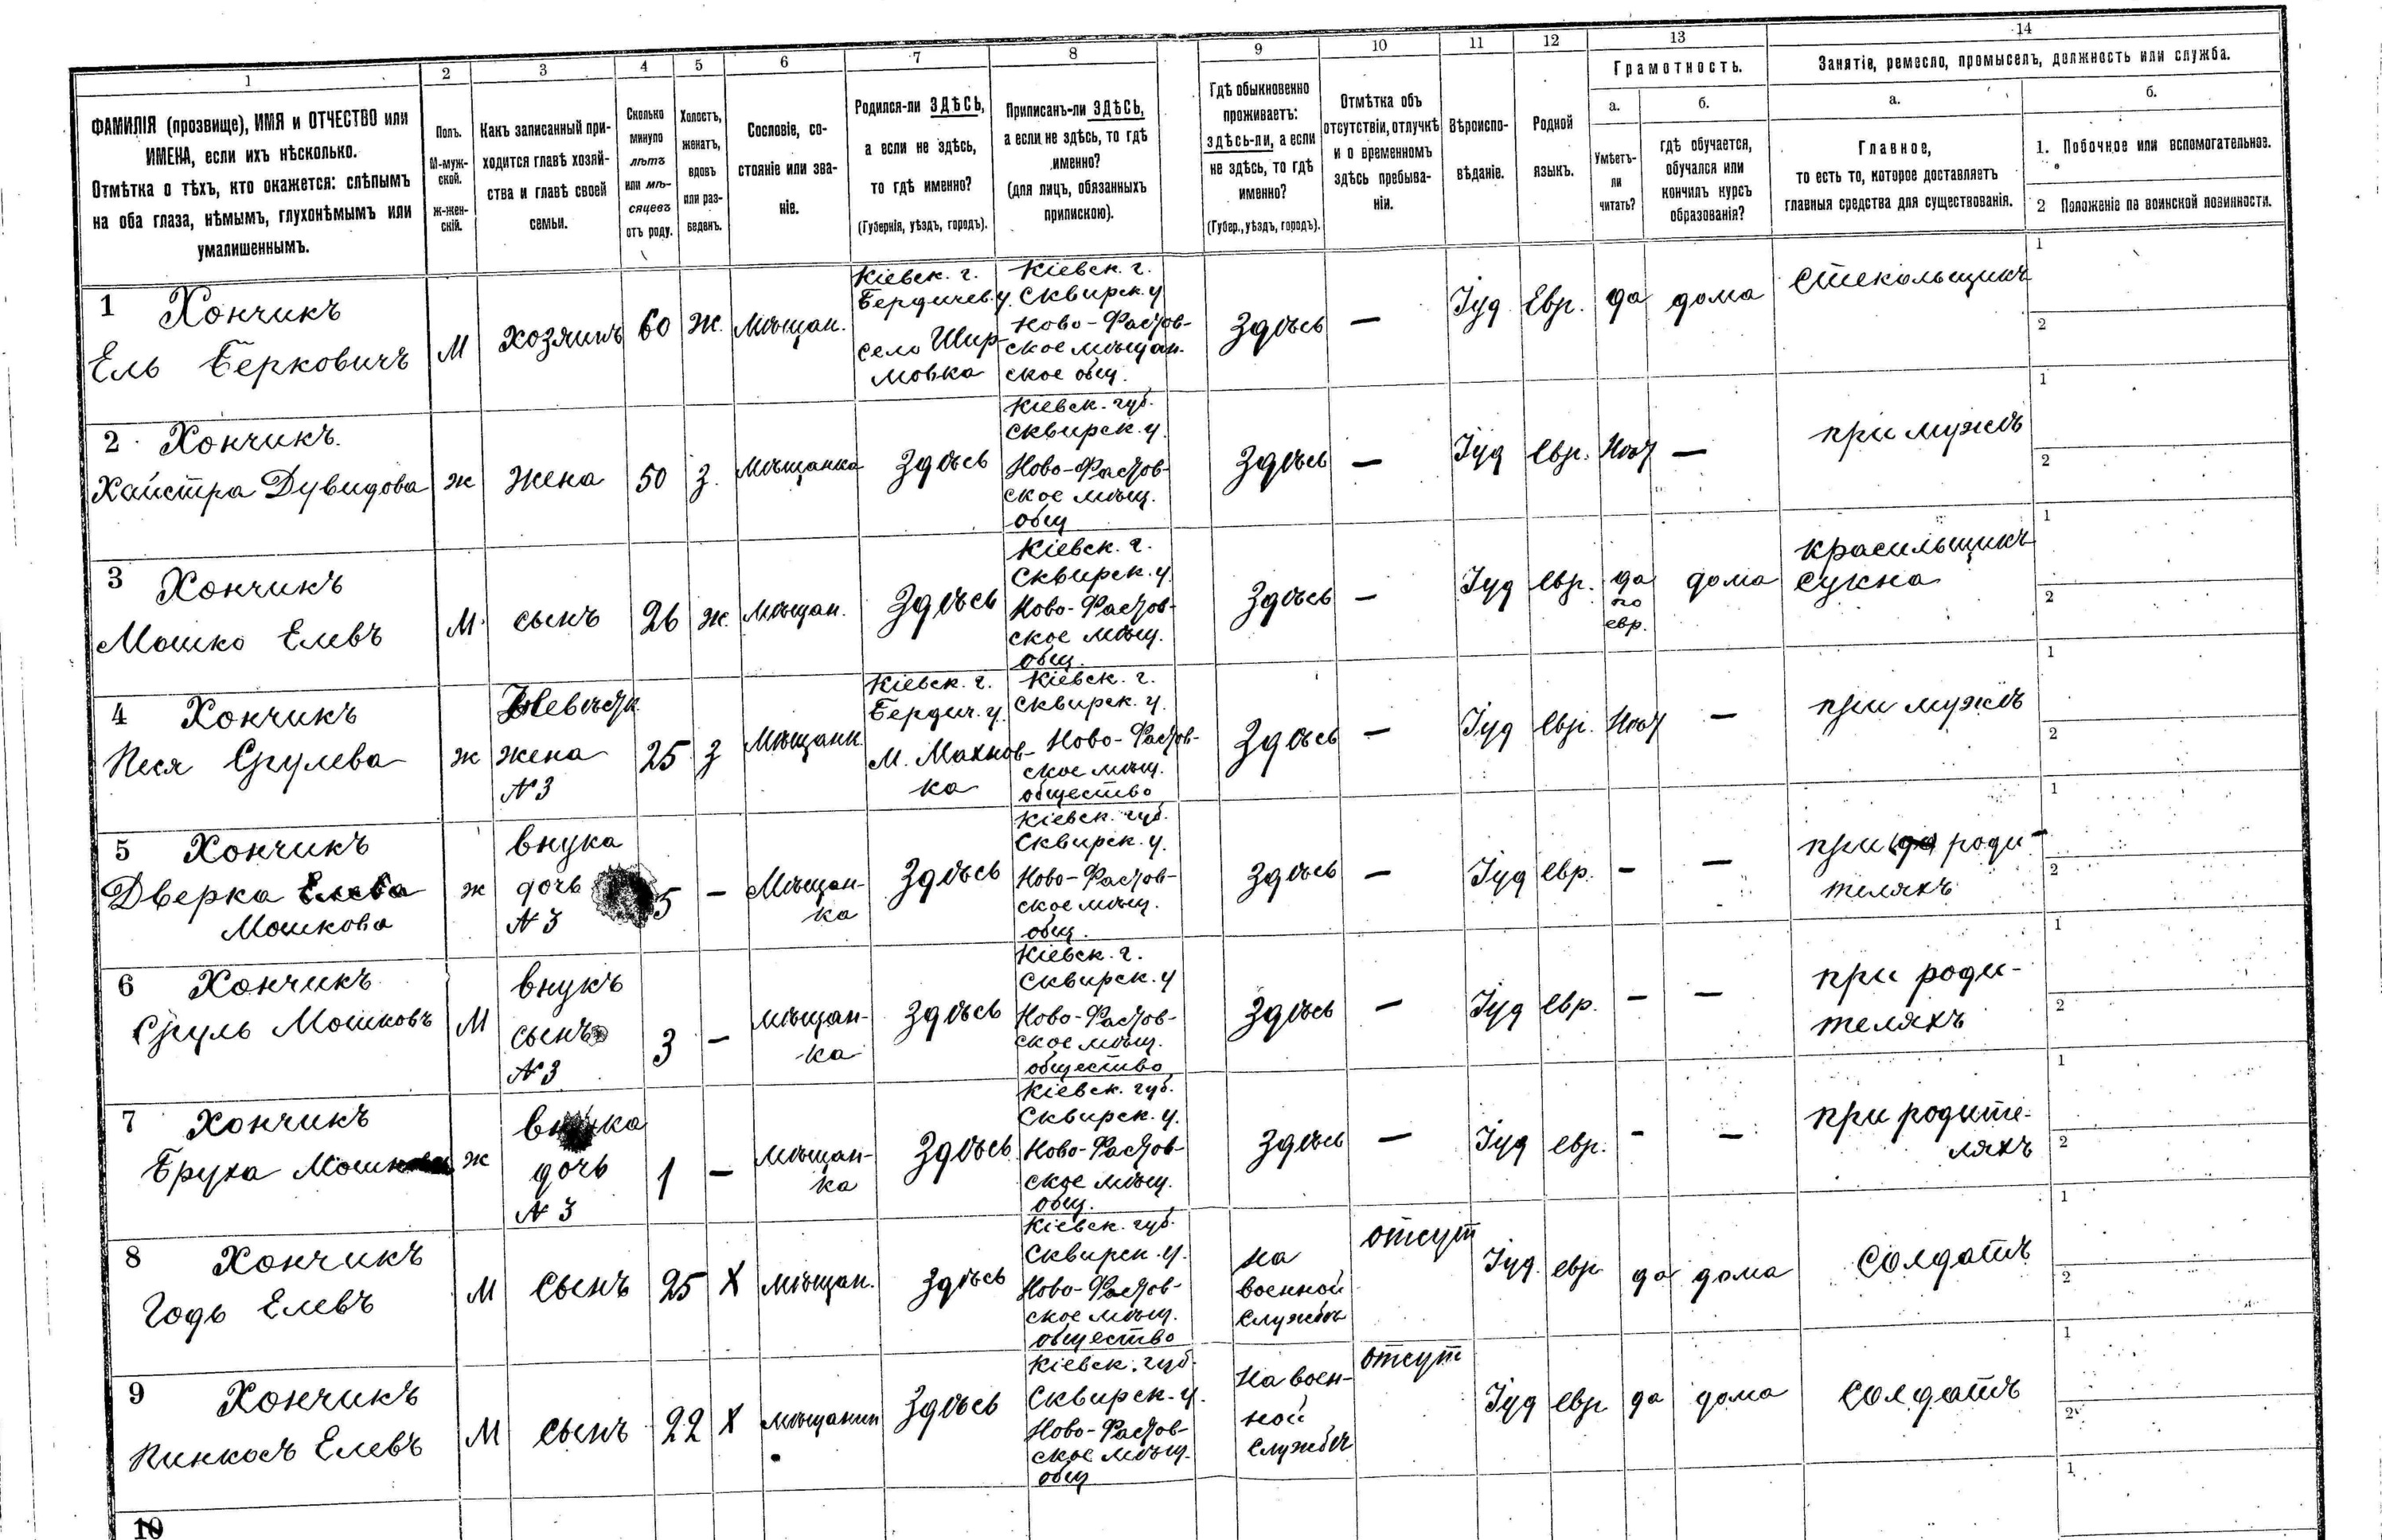 1
2
3
4
5
6
7
8
9
10
11
12
13
14
ФАМИЛІЯ (прозвище), ИМЯ и ОТЧЕСТВО или
ИМЕНА, если ихъ нѣсколько.
Отмѣтка о тѣхъ, кто окажется: слѣпымъ
на оба глаза, нѣмымъ, глухонѣмымъ или
умалишеннымъ.
Полъ.
М-муж-
ской.
ж-жен-
скій.
Какъ записанный при-
ходится главѣ хозяй-
ства и главѣ своей
семьи.
Сколько
минуло
лѣтъ
или мѣ-
сяцевъ
отъ роду.
Холостъ,
женатъ,
вдовъ
или раз-
веденъ.
Сословіе, со-
стояніе или зва-
ніе.
Родился-ли ЗДѢСЬ,
а если не здѣсь,
то гдѣ именно?
(Губернія, уѣздъ, городъ).
Приписанъ-ли ЗДѢСЬ,
а если не здѣсь, то гдѣ
именно?
(для лицъ, обязанныхъ
припискою).
Гдѣ обыкновенно
проживаетъ:
здѣсь-ли, а если
не здѣсь, то гдѣ
именно?
(Губер., уѣздъ, городъ).
Отмѣтка объ
отсутствіи, отлучкѣ
и о временномъ
здѣсь пребыва-
ніи.
Вѣроиспо-
вѣданіе.
Родной
языкъ.
Грамотность.
а.
Умѣетъ-
ли
читать?
б.
гдѣ обучается,
обучался или
кончилъ курсъ
образованія?
Занятіе, ремесло, промыселъ, должность или служба.
а.
Главное,
то есть то, которое доставляетъ
главныя средства для существованія.
б.
1. Побочное или вспомогательное.
2 Положеніе по воинской повинности.
1 Хончикъ
Ель Берковичъ
М
хозяинъ
60
ж.
мѣщан.
Кіевск. г.
Бердичев. у.
село Шир-
мовка
Кіевск. г.
Сквирск. у
Ново-Фастов-
ское мѣщан-
ское общ.
Здѣсь
—
Іуд
Евр.
да
дома
стекольщикъ
1
2
2 Хончикъ
Хайстра Дувидова
ж
жена
50
з.
мѣщанка
Здѣсь
Кіевск. губ.
Сквирск. у.
Ново-Фастов-
ское мѣщ.
общ
Здѣсь
—
Іуд
евр.
нѣт
—
при мужѣ
1
2
3 Хончикъ
Мошко Елевъ
М
сынъ
26
ж.
мѣщан.
Здѣсь
Кіевск. г.
Сквирск. у.
Ново-Фастов-
ское мѣщ.
общ.
Здѣсь
—
Іуд
евр.
да
по
евр.
дома
красильщикъ
сукна
1
2
4 Хончикъ
Песя Срулева
ж
Невѣстк.
жена
№ 3
25
з
мѣщанк.
Кіевск. г.
Бердич. у.
М. Махнов-
ка
Кіевск. г.
Сквирск. у.
Ново-Фастов-
ское мѣщ.
общество
Здѣсь
—
Іуд
евр.
нѣт
—
при мужѣ
1
2
5 Хончикъ
Дверка Елева
Мошкова
ж
внука
дочь
№ 3
5
—
Мѣщан-
ка
Здѣсь
Кіевск. губ.
Сквирск. у.
Ново-Фастов-
ское мѣщ.
общ.
Здѣсь
—
Іуд
евр.
—
—
при роди-
теляхъ
1
2
6 Хончикъ
Сруль Мошковъ
М
внукъ
сынъ
№ 3
3
—
мѣщан-
ка
Здѣсь
Кіевск. г.
Сквирск. у
Ново-Фастов-
ское мѣщ.
общество
Здѣсь
—
Іуд
евр.
—
—
при роди-
теляхъ
1
2
7 Хончикъ
Бруха Мошкова
ж
внука
дочь
№ 3
1
—
мѣщан-
ка
Здѣсь
Кіевск. губ.
Сквирск. у.
Ново-Фастов-
ское мѣщ.
общ.
Здѣсь
—
Іуд
евр.
-
—
при родите-
ляхъ
1
2
8 Хончикъ
Годь Елевъ
М
сынъ
25
Х
мѣщан.
Здѣсь
Кіевск. губ.
Сквирск. у.
Ново-Фастов-
ское мѣщ.
общество
на
военной
службѣ
отсут
Іуд.
евр
да
дома
солдатъ
1
2
9 Хончикъ
Пинкосъ Елевъ
М
сынъ
22
Х
мѣщанин
Здѣсь
Кіевск. губ.
Сквирск. у.
Ново-Фастов-
ское мѣщ.
общ
на воен-
ной
службѣ
отсут
Іуд
евр
да
дома
солдатъ
1
2
10
1